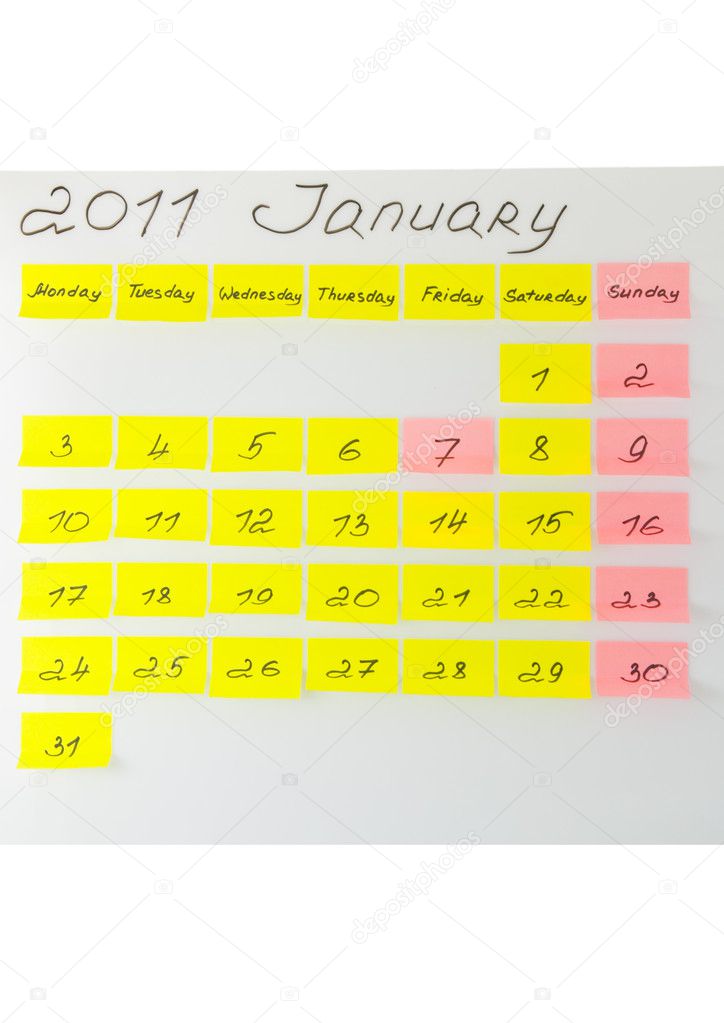 2011 January
Monday Tuesday Wednesday Thursday Friday Saturday Sunday
1 2
3 4 5 6 7 8 9
10 11 12 13 14 15 16
17 18 19 20 21 22 23
24 25 26 27 28 29 30
31
depositphotos
depositphotos
depositphotos
depositphotos
depositphotos
depositphotos
depositphotos